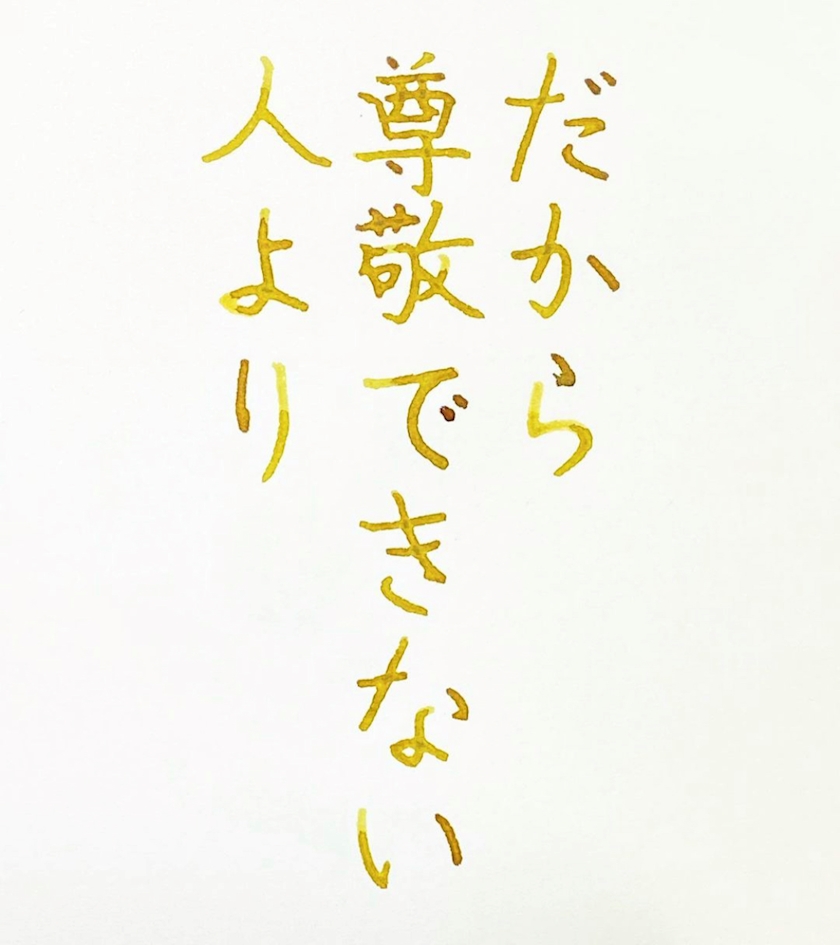 だから
尊敬できない
人より